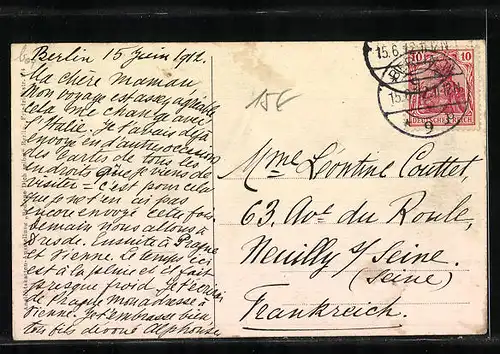 Berlin 15 Juin 1912.
Ma chère maman
Mon voyage est assez agréable
cela me change avec
l'Italie. Je t'avais déjà
envoyé en d'autres occasions
des cartes de tous les
endroits que je viens de
visiter = c'est pour cela
que je t'en ai pas
encore envoyé cette fois.
Demain nous allons à
Dresde. Ensuite à Prague
et Vienne. Le temps ici
est à la pluie et il fait
presque froid. Je t'écrirai
de Prague mon adresse à
Vienne. Je t'embrasse bien
ton fils dévoué Alphonse
15E
15.6.12. 11-12N
BERLIN
15.6.12. 11-12N
9
10 10
DEUTSCHES REICH
Mme Léontine Couttet,
63. Avᵉ du Roule,
Neuilly s/ Seine.
(Seine)
Frankreich.